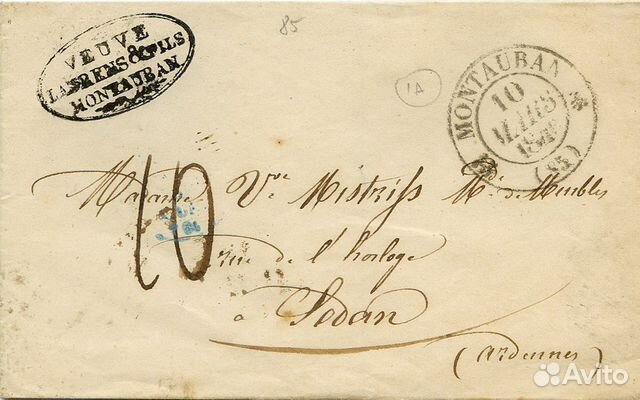 85
VEUVE
& FILS
MONTAUBAN
MONTAUBAN
10
MARS
(85)
1A
10
Madame Vve Mistriss Mde de Meubles
rue de l'horloge
à Sedan
(Ardennes)
Avito